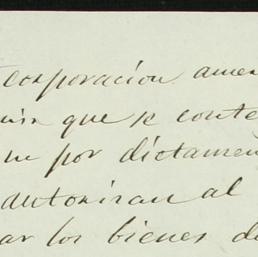 corporacion amen
que se conte
por dictamen
autorizan al
ar los bienes d